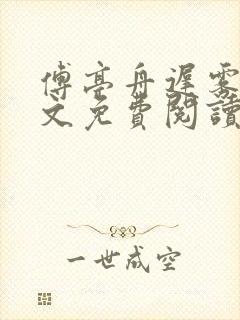 傅亭舟遲霧
文免費閱讀
一世成空